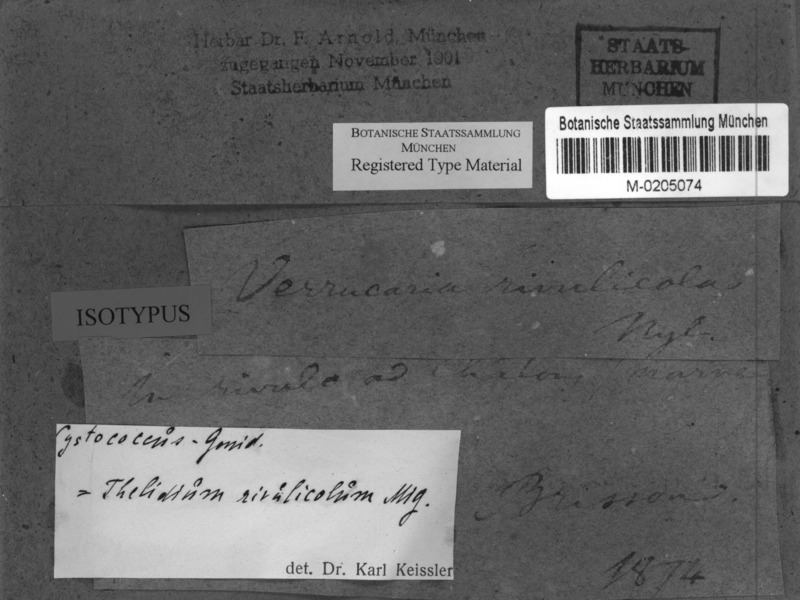 Herbar Dr. F. Arnold, München
zugegangen November 1901
Staatsherbarium München
STAATS-
HERBARIUM
MÜNCHEN
BOTANISCHE STAATSSAMMLUNG
MÜNCHEN
Registered Type Material
Botanische Staatssammlung München
M-0205074
Verrucaria rivulicola
Nyl.
ISOTYPUS
In rivulo ad
Cystococcus-Gonid.
= Thelidium rivulicolum Mig.
det. Dr. Karl Keissler
Brisson.
1874